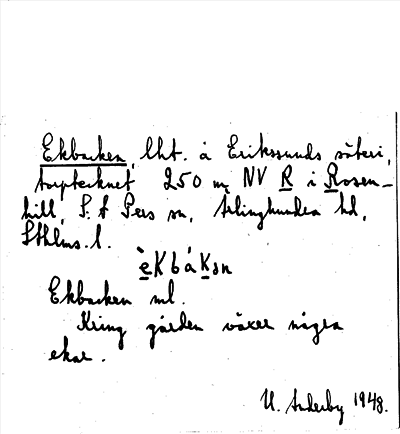 Ekbacken, lht. å Erikssunds säteri,
torptecknet 250 m NV R i Rosen-
hill, S:t Pers sn, Ärlinghundra hd,
Sthlms l.
èKbáKən
Ekbacken ml.
Kring gården växer några
ekar.
U. Anderby 1948.